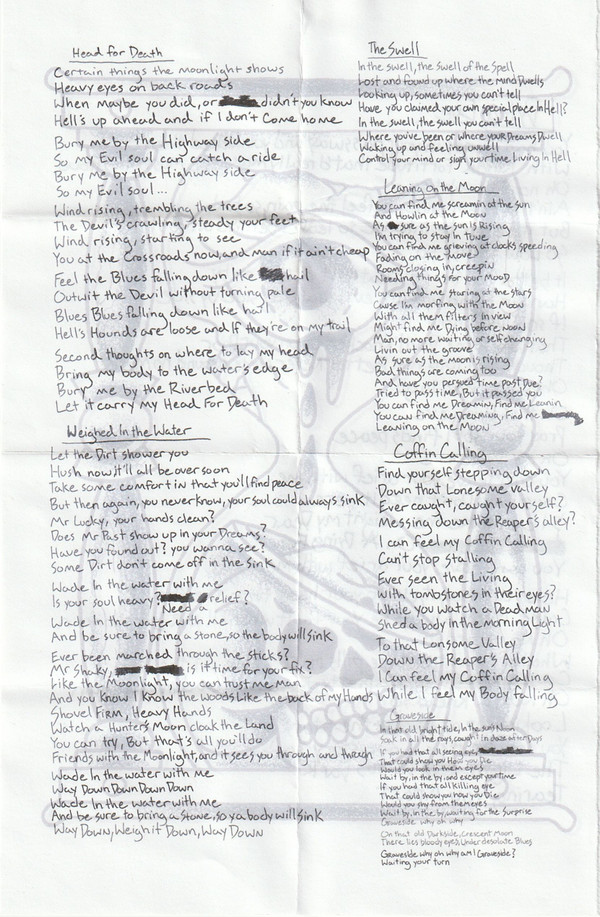 Head for Death
Certain things the moonlight shows
Heavy eyes on back roads
When maybe you did, or didn't you know
Hell's up ahead and if I don't Come home
Bury me by the Highway side
So my Evil soul can catch a ride
Bury me by the Highway side
So my Evil soul...
Wind rising, trembling the trees
The Devil's crawling, steady your feet
Wind rising, starting to see
You at the Crossroads now, and man if it ain't cheap
Feel the Blues falling down like hail
Outwit the Devil without turning pale
Blues Blues falling down like hail
Hell's Hounds are loose and If they're on my trail
Second thoughts on where to lay my head
Bring my body to the water's edge
Bury me by the Riverbed
Let it carry my Head For Death
Weighed In the Water
Let the Dirt shower you
Hush now it'll all be over soon
Take some comfort in that you'll find peace
But then again, you never know, your soul could always sink
Mr Lucky, your hands clean?
Does Mr Past show up in your Dreams?
Have you found out? you wanna see?
Some Dirt don't come off in the sink
Wade In the water with me
Is your soul heavy? Need a relief?
Wade In the water with me
And be sure to bring a stone, so the body will sink
Ever been marched through the sticks?
Mr Shaky, is it time for your fix?
Like the Moonlight, you can trust me Man
And you know I know the woods Like the back of my Hands
Shovel Firm, Heavy Hands
Watch a Hunter's Moon cloak the Land
You can try, But that's all you'll do
Friends with the Moonlight, and it sees you through and through
Wade In the water with me
Way Down Down Down Down
Wade In the water with me
And be sure to bring a Stone, so ya body will sink
Way Down, Weigh it Down, Way Down
The Swell
In the swell, the swell of the Spell
Lost and found up where the mind Dwells
Looking up, sometimes you can't tell
Have you claimed your own special place In Hell?
In the swell, the swell you can't tell
Where you've been or where your Dreams Dwell
Waking up and feeling unwell
Control your mind or sign your time Living In Hell
Leaning On the Moon
You can find me screamin at the sun
And Howlin at the Moon
As sure as the sun is Rising
I'm trying to stay In tune
You can find me grieving at clocks speeding
Fading on the move
Rooms closing in, creepin
Needing things for your Mood
You can find me staring at the stars
Cause I'm morfing with the Moon
With all them filters in view
Might find me Dying before noon
Man, no more waiting or self changing
Livin out the groove
As sure as the Moon is rising
Bad things are coming too
And have you persued time past Due?
Tried to pass time, But it passed you
You can find me Dreamin, Find me Leanin
You can find me Dreaming, Find me
Leaning on the Moon
Coffin Calling
Find yourself stepping down
Down that Lonesome Valley
Ever caught, caught yourself?
Messing down the Reaper's alley?
I can feel my Coffin Calling
Can't stop stalling
Ever seen the Living
With tombstones in their eyes?
While you watch a Dead man
Shed a body in the morning Light
To that Lonsome Valley
Down the Reaper's Alley
I Can feel my Coffin Calling
While I feel my Body falling
Graveside
In that old bright tide, In the sun's Noon
Soak in all the rays, caught In daze after Days
If you had that all seeing eye,
That could show you How you Die
Would you look in them eyes
Wait by, in the by, and except your time
If you had that all Killing eye
That could show you how you Die
Would you Pry from them eyes
Wait by, in the by, waiting for the Surprise
Graveside why oh why
On that old Darkside, Crescent Moon
There lies bloody eyes, Under desolate Blues
Graveside why oh why am I Graveside?
Waiting your turn